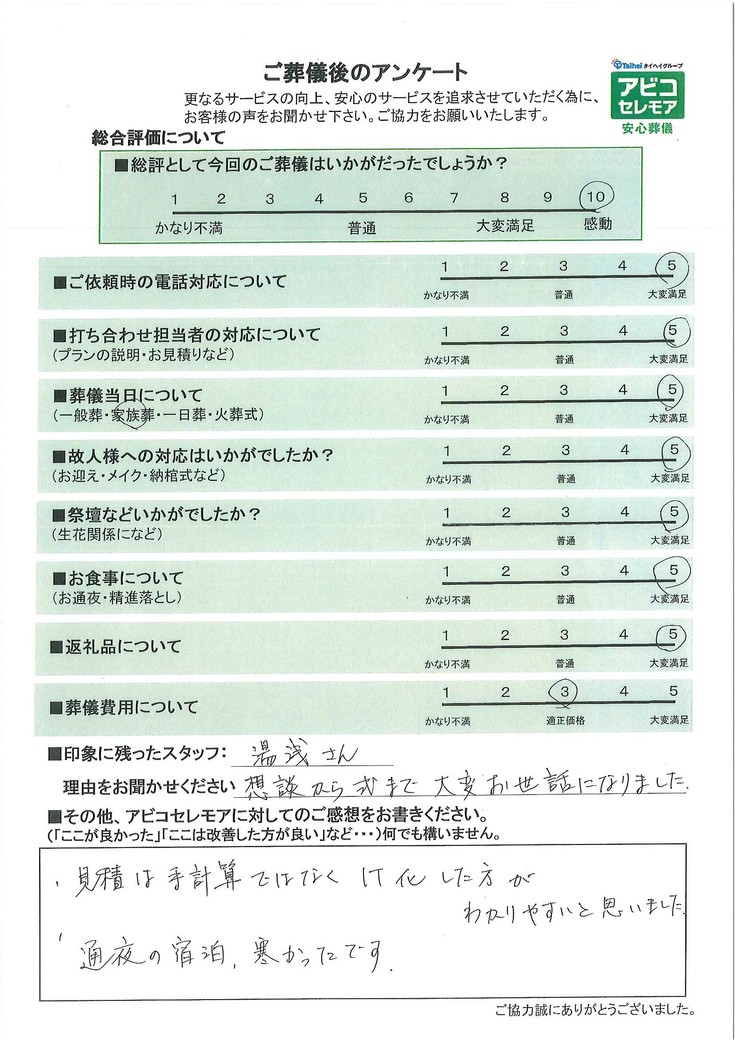 ご葬儀後のアンケート
Taihei タイヘイグループ
アビコ
セレモア
安心葬儀
更なるサービスの向上、安心のサービスを追求させていただく為に、
お客様の声をお聞かせ下さい。ご協力をお願いいたします。
総合評価について
■総評として今回のご葬儀はいかがだったでしょうか？
1 2 3 4 5 6 7 8 9 10
かなり不満 普通 大変満足 感動
■ご依頼時の電話対応について
1 2 3 4 5
かなり不満 普通 大変満足
■打ち合わせ担当者の対応について
(プランの説明・お見積りなど)
1 2 3 4 5
かなり不満 普通 大変満足
■葬儀当日について
(一般葬・家族葬・一日葬・火葬式)
1 2 3 4 5
かなり不満 普通 大変満足
■故人様への対応はいかがでしたか？
(お迎え・メイク・納棺式など)
1 2 3 4 5
かなり不満 普通 大変満足
■祭壇などいかがでしたか？
(生花関係になど)
1 2 3 4 5
かなり不満 普通 大変満足
■お食事について
(お通夜・精進落とし)
1 2 3 4 5
かなり不満 普通 大変満足
■返礼品について
1 2 3 4 5
かなり不満 普通 大変満足
■葬儀費用について
1 2 3 4 5
かなり不満 適正価格 大変満足
■印象に残ったスタッフ： 湯浅さん
理由をお聞かせください 想談から式まで大変お世話になりました.
■その他、アビコセレモアに対してのご感想をお書きください。
(「ここが良かった」「ここは改善した方が良い」など・・・)何でも構いません。
・見積は手計算ではなくIT化した方が
わかりやすいと思いました.
・通夜の宿泊、寒かったです.
ご協力誠にありがとうございました。